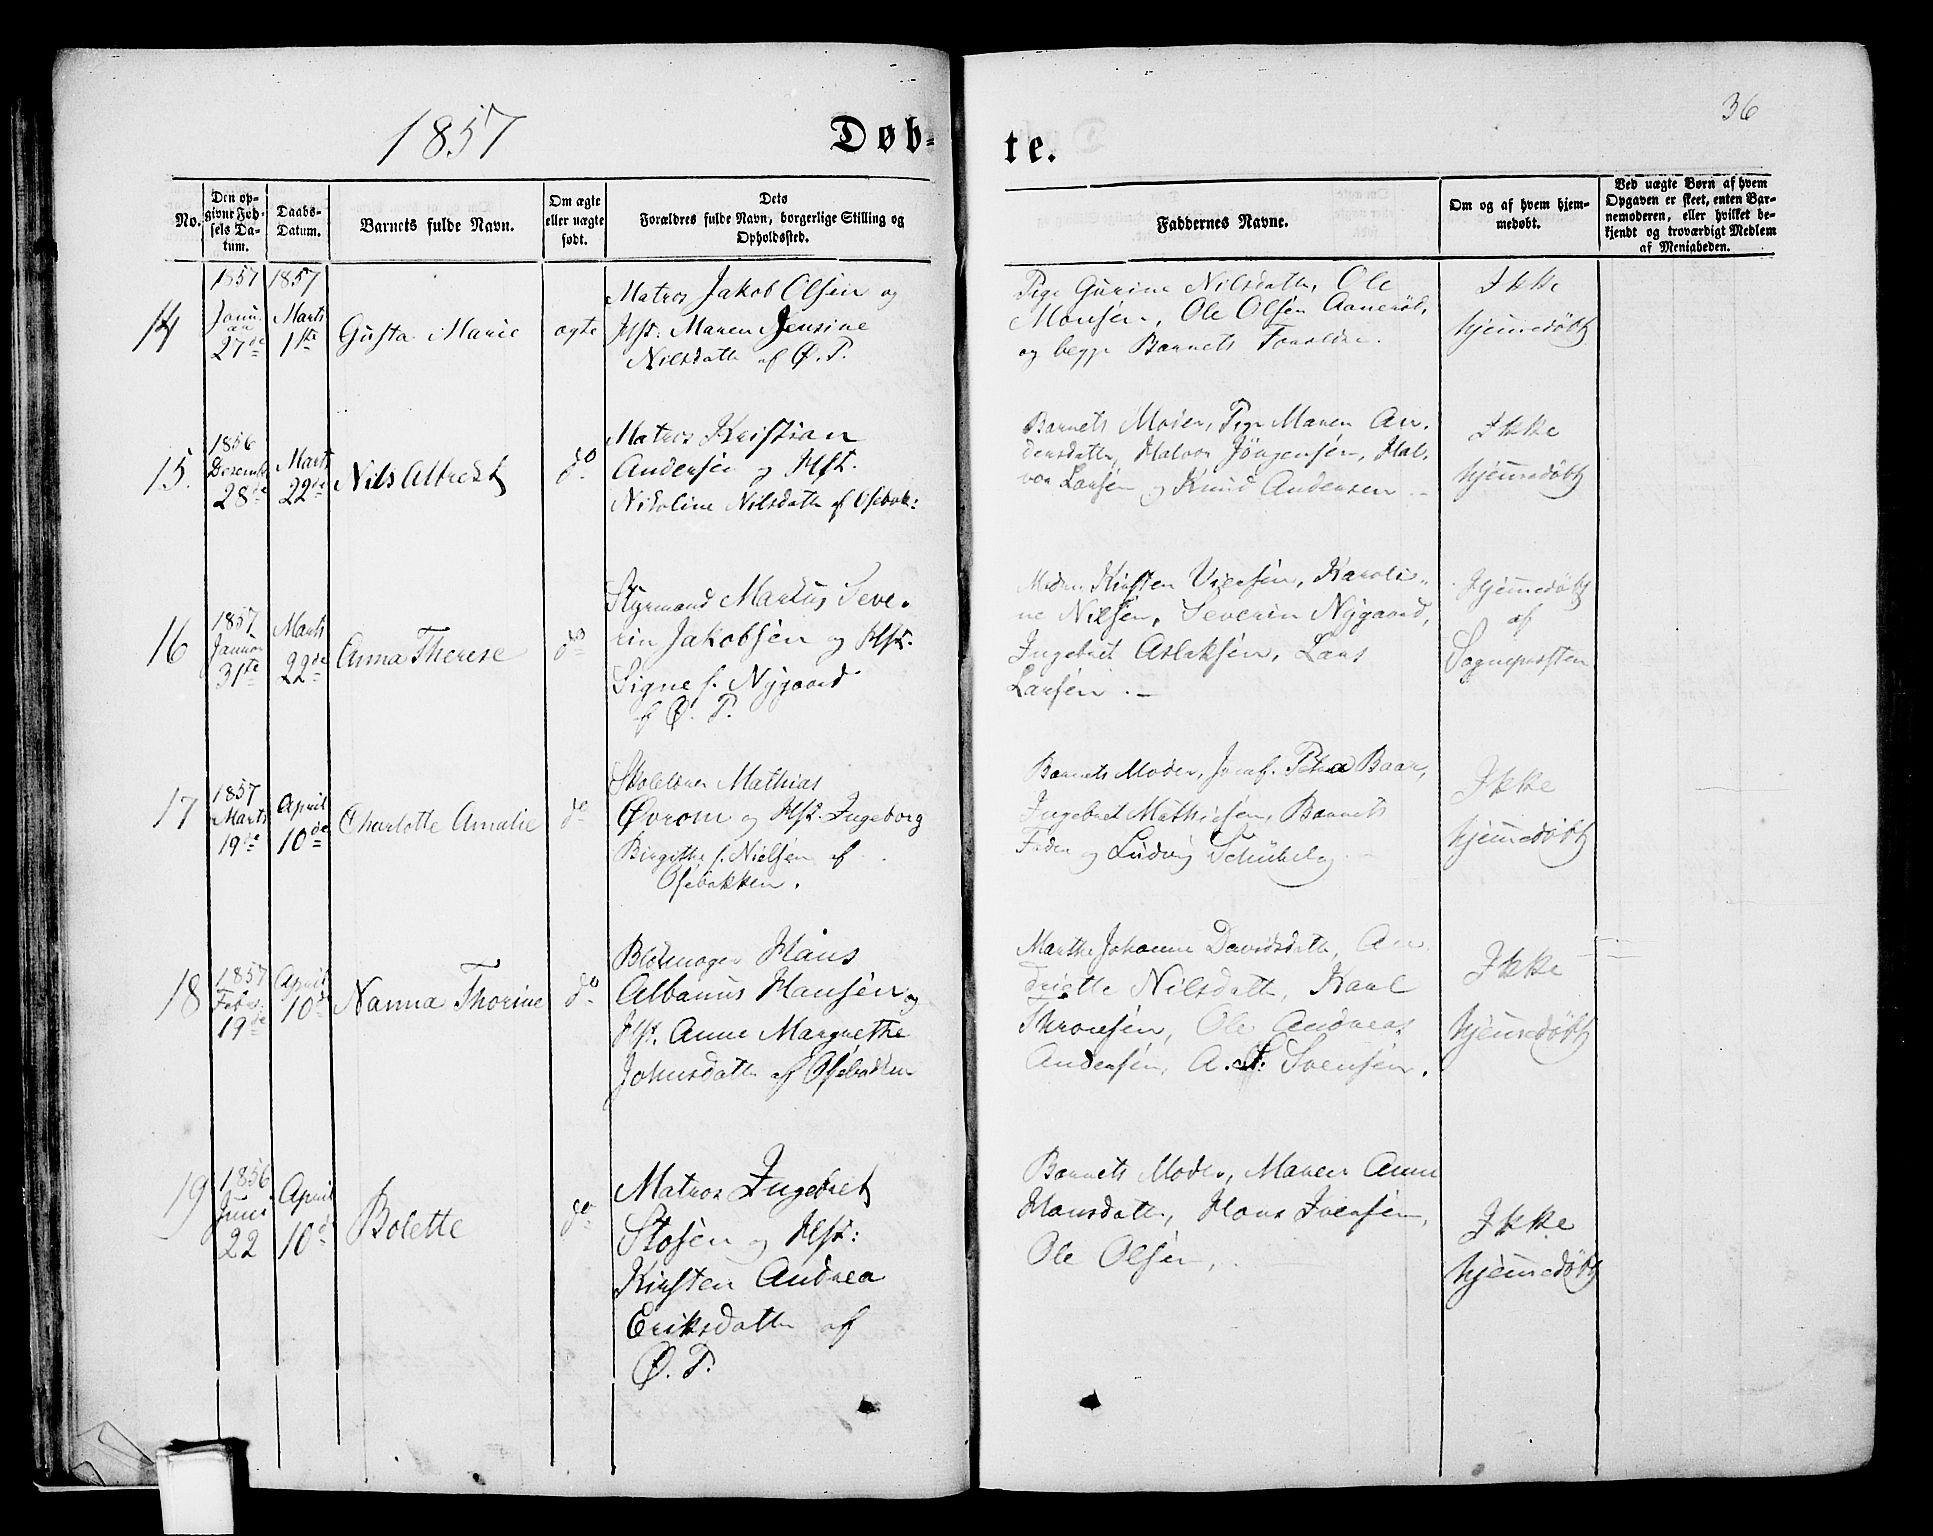 1857
Døb-
te.
36
No.
Den op-
givne Fød-
sels Da-
tum.
Daabs-
Datum.
Barnets fulde Navn.
Om ægte
eller uægte
født.
Dets
Forældres fulde Navn, borgerlige Stilling og
Opholdssted.
Faddernes Navne.
Om og af hvem hjem-
medøbt.
Ved uægte Børn af hvem
Opgaven er skeet, enten Bar-
nemoderen, eller hvilket be-
kjendt og troværdigt Medlem
af Menigheden.
14
1857
Janu-
ar
27de
1857
Marts
1ste
Gusta Marie
ægte
Matros Jakob Olsen og
Hst. Maren Jensine
Nilsdatte af Ø. P.
Pige Gurine Nilsdatte, Ole
Monsen, Ole Olsen Aaneröd,
og begge Barnets Forældre.
Ikke
hjemmedøbt
15.
1856
Decemb.
28de
Marts
22de
Nils Albrekt
do
Matros Kristian
Andersen og Hst.
Nikoline Nilsdatte af Osebak:
Barnets Moder, Pige Maren An-
dersdatte, Halvor Jörgensen, Hal-
vor Larsen og Knud Andersen
Ikke
hjemmedøbt
16
1857
Januar
31te
Marts
22de
Anna Therese
do
Styrmand Markus Seve-
rin Jakobsen og Hst.
Signe f. Nygaard
af Ø. P.
Moder, Kirsten Versen, Karoli-
ne Nilsen, Severin Nygaard,
Ingebret Aslaksen, Lars
Larsen.
Hjemmedøbt
af
Sognepresten
17
1857
Marts
19de
April
10de
Charlotte Amalie
do
Skolelærer Mathias
Øvrom og Hst. Ingeborg
Birgithe f. Nielsen af
Osebakken.
Barnets Moder, Jomf. Petra Baar,
Ingebret Mathisen, Barnets
Fader og Ludvig Schübeleg
Ikke
hjemmedøbt
18
1857
Febr.
19de
April
10de
Nanna Thorine
do
Blokmager Hans
Albanus Hansen og
Hst. Anne Margrethe
Johnsdatte af Osebakken
Marthe Johanne Davidsdatte, An-
driette Nilsdatte, Karl
Thronsen, Ole Andreas
Andersen, A. S. Svensen.
Ikke
hjemmedøbt
19
1856
Juni
22
April
10de
Bolette
do
Matros Ingebret
Stosen og Hst:
Kirsten Andrea
Eriksdatte af
Ø. P.
Barnets Moder, Maren Anne
Hansdatte, Hans Iversen,
Ole Olsen,
Ikke
hjemmedøbt